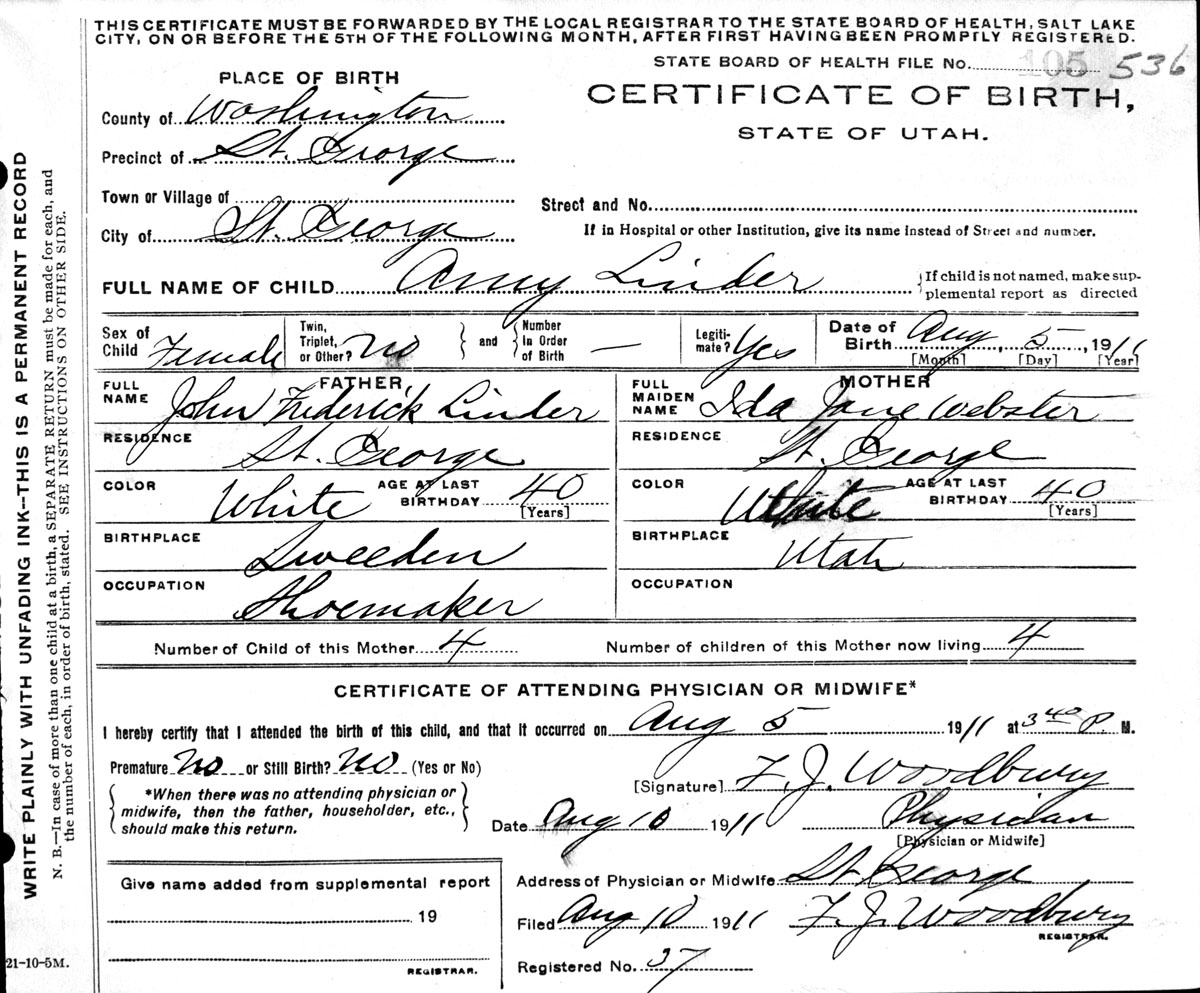 THIS CERTIFICATE MUST BE FORWARDED BY THE LOCAL REGISTRAR TO THE STATE BOARD OF HEALTH, SALT LAKE
CITY, ON OR BEFORE THE 5TH OF THE FOLLOWING MONTH, AFTER FIRST HAVING BEEN PROMPTLY REGISTERED.
STATE BOARD OF HEALTH FILE No. 105 536
PLACE OF BIRTH
CERTIFICATE OF BIRTH,
STATE OF UTAH.
County of Washington
Precinct of St. George
Town or Village of
Street and No.
City of St. George
If in Hospital or other Institution, give its name instead of Street and number.
FULL NAME OF CHILD Amy Linder
If child is not named, make sup-
plemental report as directed
Sex of Child Female
Twin, Triplet, or Other? No
and
Number In Order of Birth —
Legiti-mate? Yes
Date of Birth Aug, 5, 1911
[Month] [Day] [Year]
FATHER
FULL NAME John Frederick Linder
MOTHER
FULL MAIDEN NAME Ida Jane Webster
RESIDENCE St. George
RESIDENCE St. George
COLOR White AGE AT LAST BIRTHDAY 40 [Years]
COLOR White AGE AT LAST BIRTHDAY 40 [Years]
BIRTHPLACE Sweeden
BIRTHPLACE Utah
OCCUPATION Shoemaker
OCCUPATION
Number of Child of this Mother 4
Number of children of this Mother now living 4
CERTIFICATE OF ATTENDING PHYSICIAN OR MIDWIFE*
I hereby certify that I attended the birth of this child, and that it occurred on Aug 5 1911 at 3 40 P. M.
Premature No or Still Birth? No (Yes or No)
*When there was no attending physician or
midwife, then the father, householder, etc.,
should make this return.
[Signature] F. J. Woodbury
Date Aug 10 1911 Physician
[Physician or Midwife]
Give name added from supplemental report
19
REGISTRAR.
Address of Physician or Midwife St. George
Filed Aug 10 1911 F. J. Woodbury
REGISTRAR.
Registered No. 37
WRITE PLAINLY WITH UNFADING INK—THIS IS A PERMANENT RECORD
N. B.—In case of more than one child at a birth, a SEPARATE RETURN must be made for each, and
the number of each, in order of birth, stated. SEE INSTRUCTIONS ON OTHER SIDE.
21-10-5M.